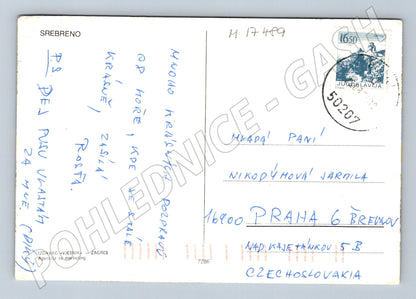 SREBRENO
M 17489
16.50
JUGOSLAVIJA
50207
MNOHO KRÁSNÝCH POZDRAVŮ
OD MOŘE, KDE JE STÁLE
KRÁSNĚ, ZASÍLÁ
ROSŤA.
P.S.
DEJ PUSU
ZA MNE.
MLADÁ PANÍ
NIKODÝMOVÁ JARMILA
16900 PRAHA 6 BŘEVNOV
NAD KAJETÁNKOU 5B
CZECHOSLOVAKIA
7786
POHLEDNICE - GASH